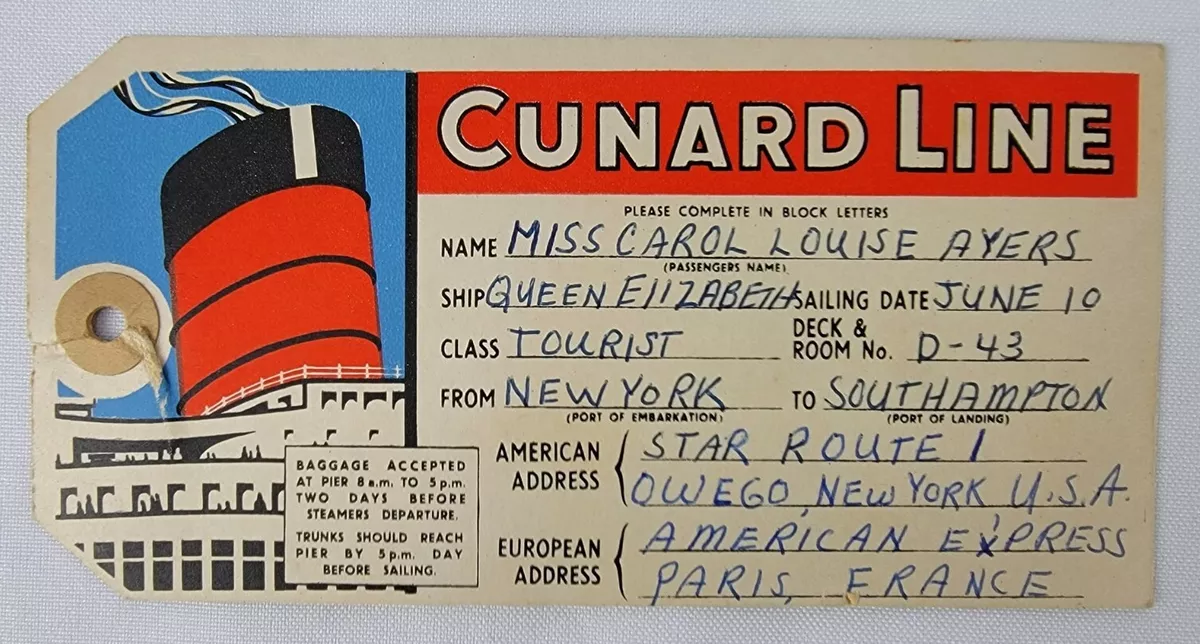 CUNARD LINE
PLEASE COMPLETE IN BLOCK LETTERS
NAME MISS CAROL LOUISE AYERS
(PASSENGERS NAME)
SHIP QUEEN ElIZABETH SAILING DATE JUNE 10
CLASS TOURIST DECK & ROOM No. D-43
FROM NEW YORK TO SOUTHAMPTON
(PORT OF EMBARKATION) (PORT OF LANDING)
AMERICAN ADDRESS
STAR ROUTE 1
OWEGO, NEW YORK U.S.A.
EUROPEAN ADDRESS
AMERICAN EXPRESS
PARIS, FRANCE
BAGGAGE ACCEPTED
AT PIER 8 a.m. TO 5 p.m.
TWO DAYS BEFORE
STEAMERS DEPARTURE.
TRUNKS SHOULD REACH
PIER BY 5 p.m. DAY
BEFORE SAILING.